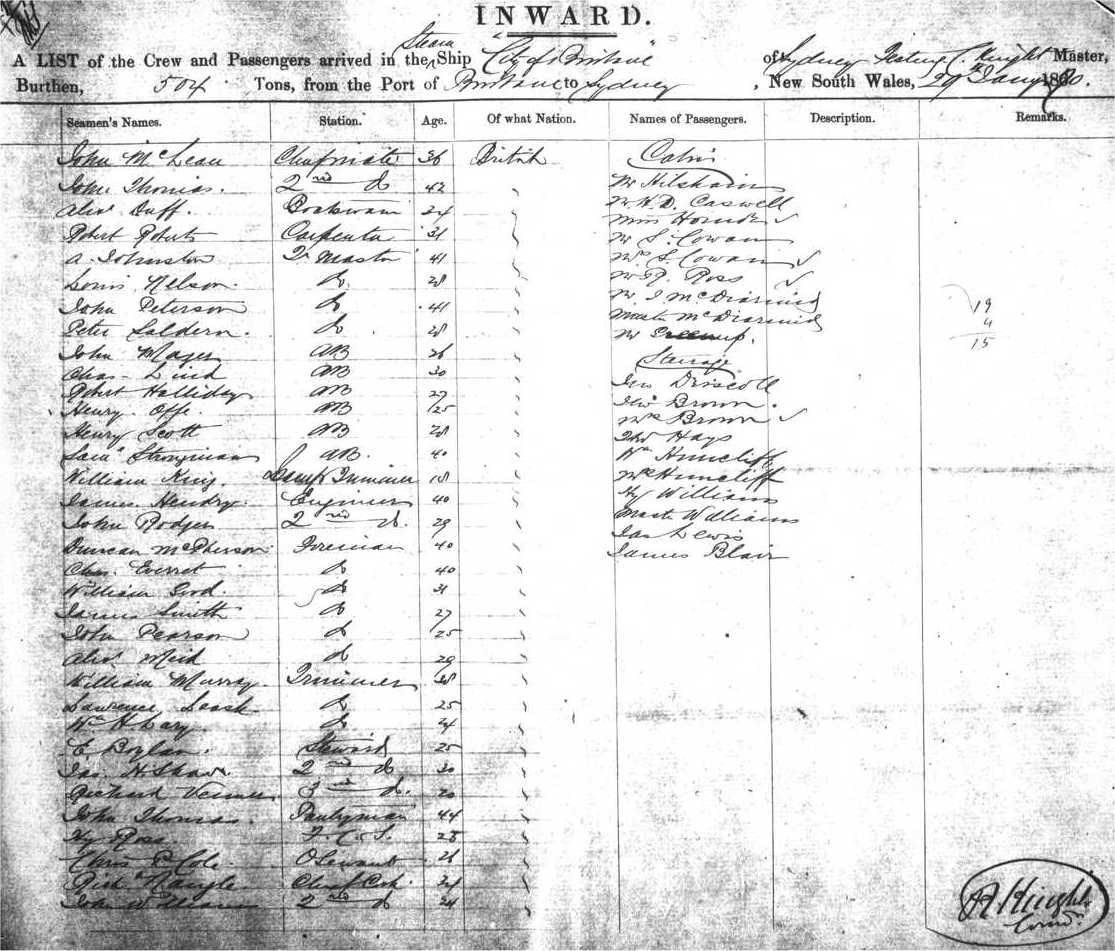 INWARD.
A LIST of the Crew and Passengers arrived in the Steam Ship "City of Brisbane" of Sydney Knight Master,
Burthen, 504 Tons, from the Port of Brisbane to Sydney, New South Wales, 29 Jany 18
Seamen's Names. Station. Age. Of what Nation. Names of Passengers. Description. Remarks.
John McLean Chief mate 36 British Cabin
John Thomas. 2nd do 42 Mr Hilshain
Alexr Duff. Boatswain 34 Mr H. D. Caswell
Robert Roberts Carpenter 31 Miss
A. Johnston Qr Master 41 Mr S. Cowan
Louis Nelson. do. 28 Mrs S. Cowan
John Peterson do 41 Mr R Ross
Peter Caldern. do 28 Mr J McDiarmid
John Mager AB 26 Master McDiarmid
Chas Lind AB 30 Mr
Robert Halliday AB 27 Steerage
Henry Offe. AB 25 Jno Driscoll
Henry Scott AB 28 Brown
Saml Strongman AB. 40 Mrs Brown
William King. Lamp Trimmer 18 Thos Hays
James Hendry. Engineer 40 Wm Huncliff
John Rodger 2nd do. 29 Mrs Huncliff
Duncan McPherson Fireman 40 Hy Williams
Chas. Everret do 40 Master Williams
William do 31 Jas Lewis
James Smith do 27 James Blair
John Pearson do 25
Alexr Meid do 29
William Murray. Trimmer 38
Lawrence Leask do 25
Wm H. Cary do 24
E Boylan. Steward 25
Jas. H Shaw 2nd do 30
Richard 3rd do. 20
John Thomas. Pantryman 44
Hy Ross. F. C. S. 28
Chris P. Cole. 21
Rich Naugle. Chief Cook 34
John Williams 2nd do 24
19
4
15
R Knight
Comr.